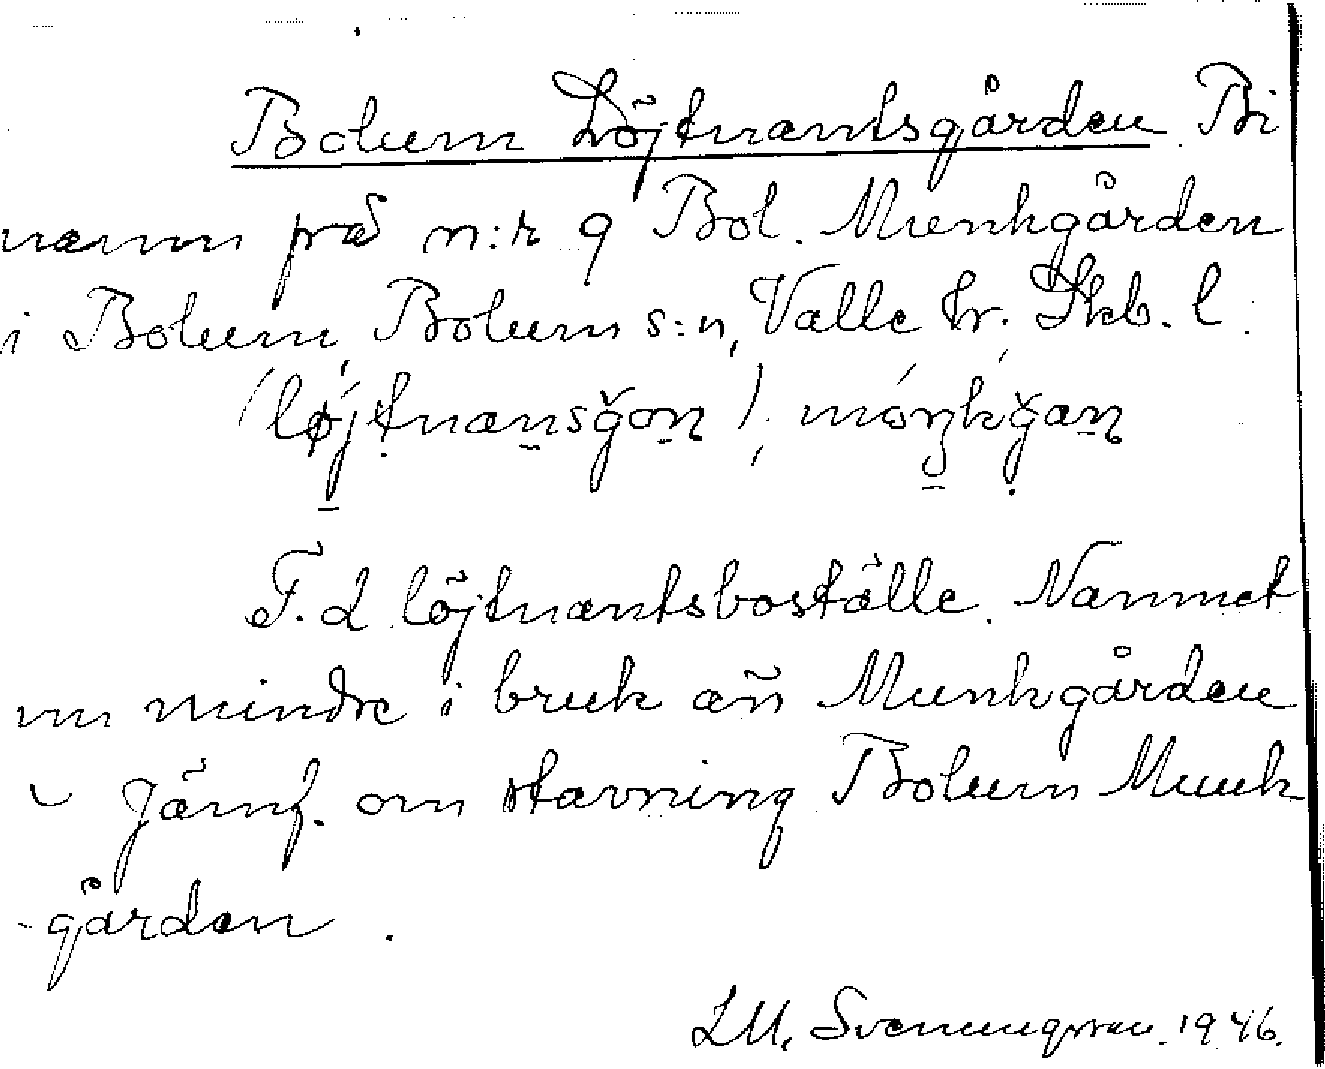 Bolum Löjtnantsgården. Bi
namn på n:r 9 Bol. Munkgården
i Bolum, Bolum s:n, Valle hr. Skb. l.
F. d. löjtnantsboställe. Namnet
nu mindre i bruk än Munkgården
Jämf. om stavning Bolum Munk
-gården.
LM. Svenungsson. 1946.